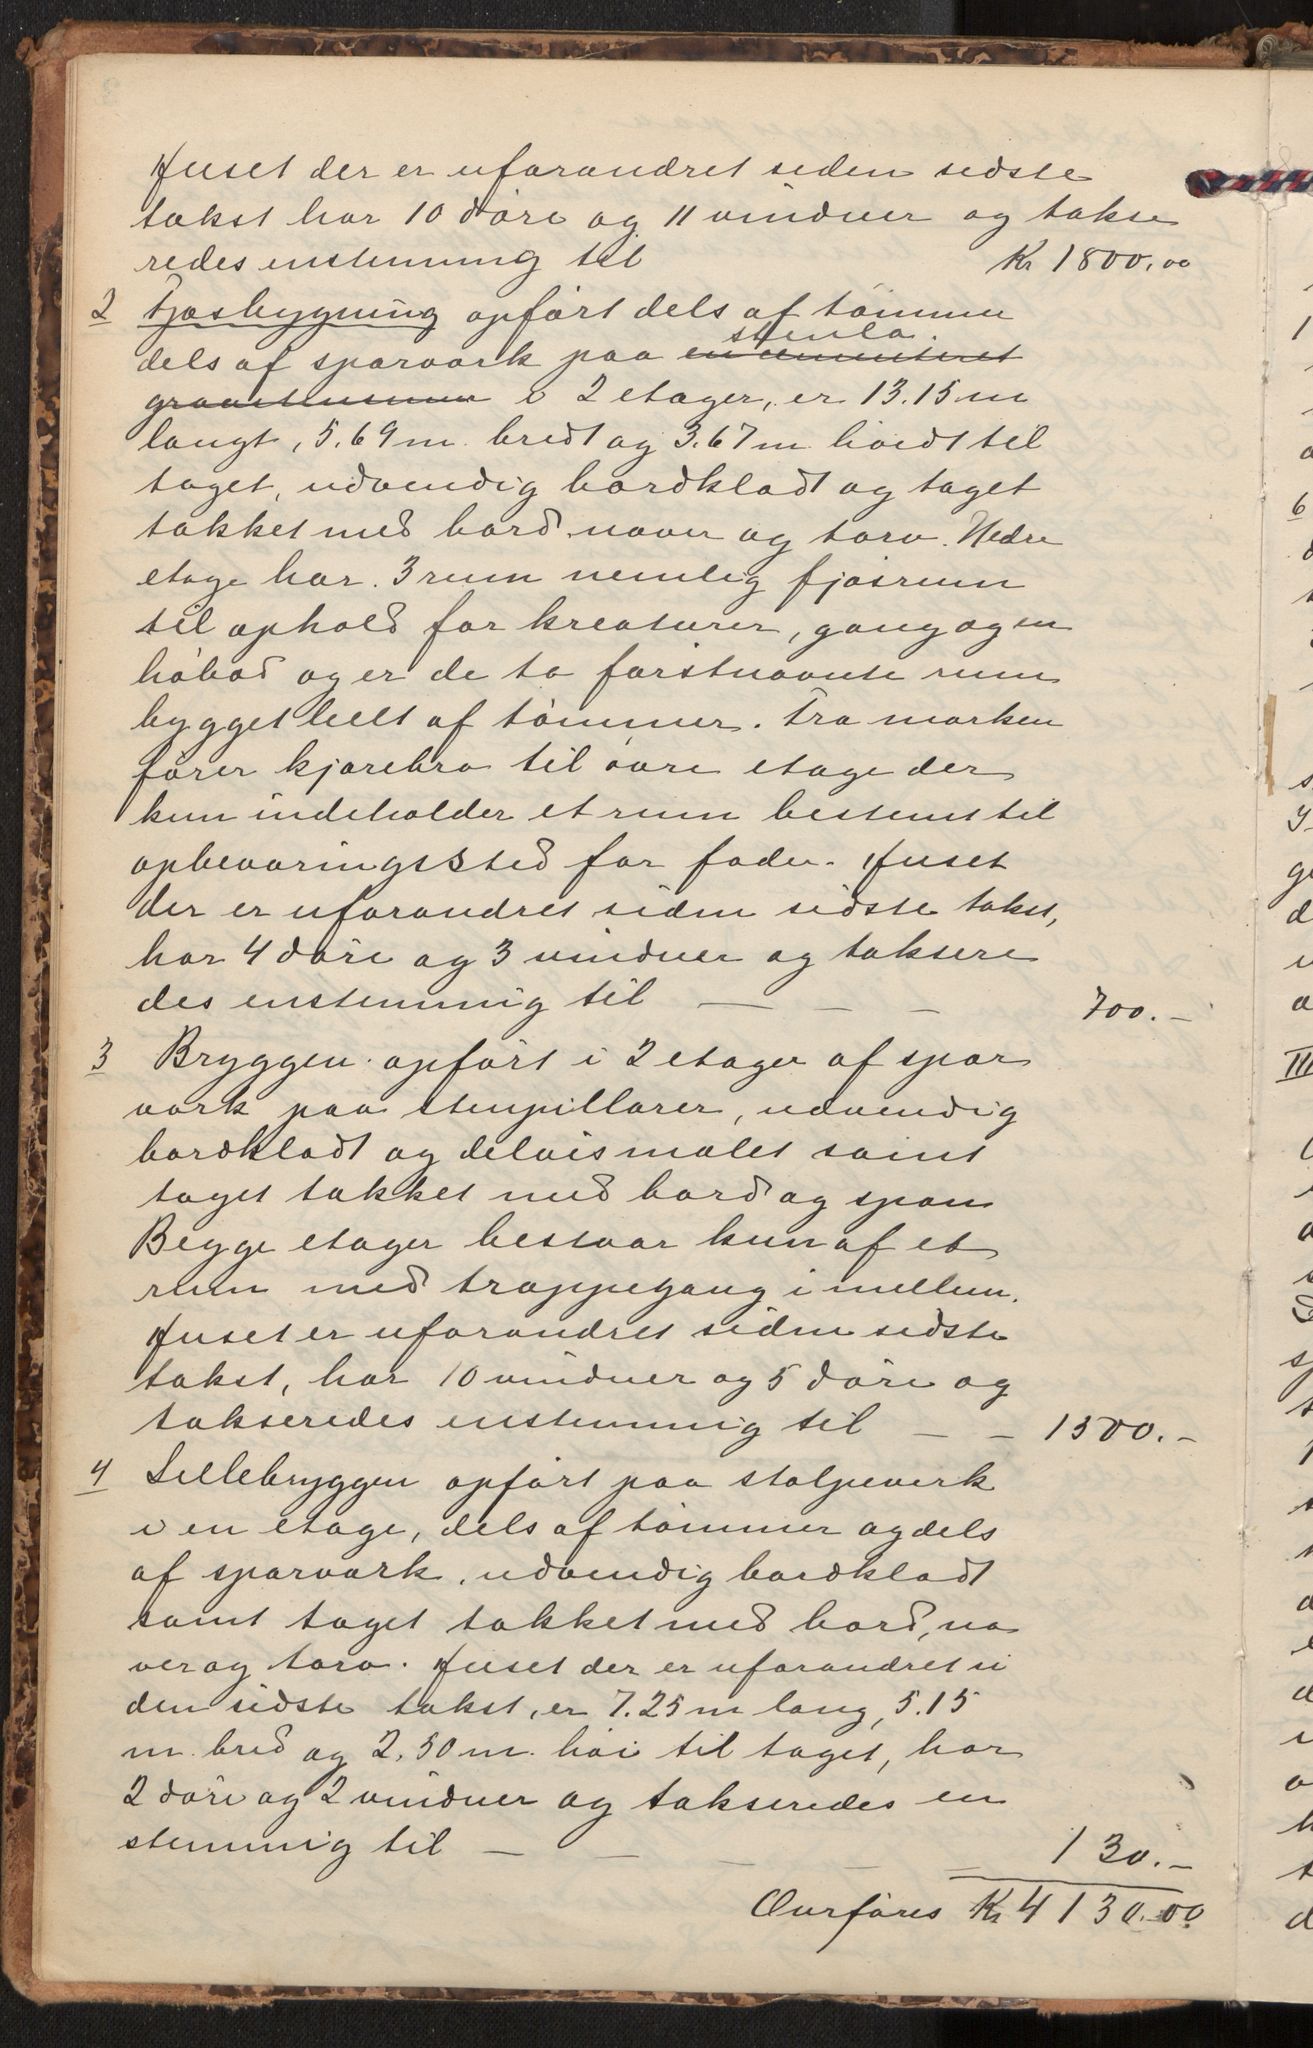 Huset der er uforandret siden sidste
takst har 10 döre og 11 vinduer og takse
redes enstemmig til Kr 1800.00
2 Fjøsbygning opfört dels af tömmer
dels af sparværk paa en cementeret stenla.
graastensmur i 2 etager, er 13.15 m
langt, 5.69 m. bredt og 3.67 m höidt til
taget, udvendig bordklædt og taget
tækket med bord næver og torv. Nedre
etage har 3 rum nemlig fjösrum
til ophold for kreaturer, gang og en
höbod og er de to förstnævnte rum
bygget helt af tömmer. Fra marken
förer kjörebro til övre etage der
kun indeholder et rum bestemt til
opbevaringssted for foder. Huset
der er uforandret siden sidste takst,
har 4 döre og 3 vinduer og taksere
des enstemmig til — — — 700.—
3 Bryggen opfört i 2 etager af spar
værk paa stenpillarer, udvendig
bordklædt og delvis malet samt
taget tækket med bord og spon
Begge etager bestaar kun af et
rum med trappegang i mellem.
Huset er uforandret siden sidste
takst, har 10 vinduer og 5 döre og
takseredes enstemmig til — — 1500.—
4 Lillebryggen opfört paa stolpeverk
i en etage, dels af tömmer og dels
af sparværk, udvendig bordklædt
samt taget tækket med bord, næ
ver og torv. Huset der er uforandret si
den sidste takst, er 7.25 m lang, 5.15
m. bred og 2.50 m. höi til taget, har
2 döre og 2 vinduer og takseredes en
stemmig til — — — — — 130.—
Overföres Kr 4130.00